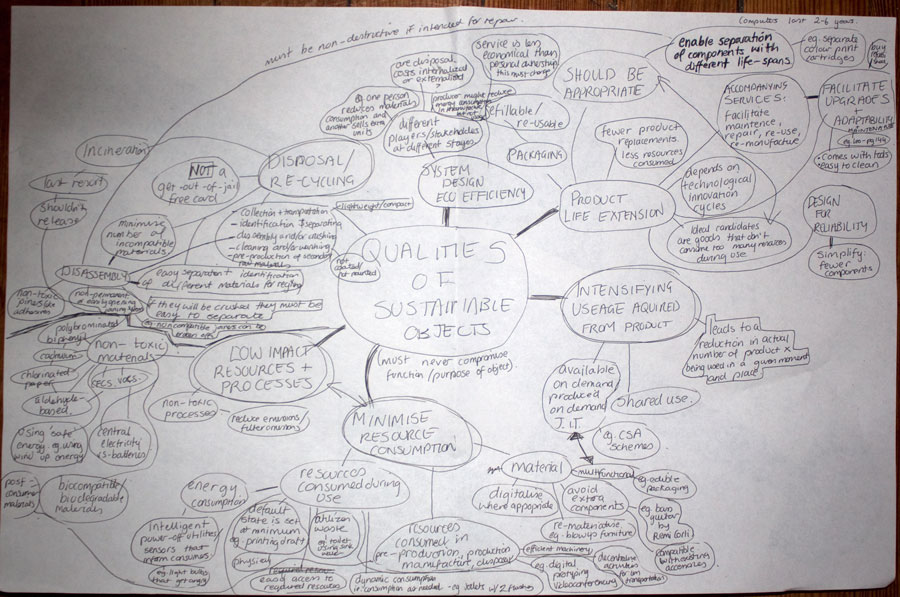 must be non-destructive if intended for repair
Computers last 2-6 years.
enable separation
of components with
different life-spans
eg. separate
colour print
cartridges
ACCOMPANYING
SERVICES:
Facilitate
maintence,
repair, re-use,
re-manufactue
FACILITATE
UPGRADES
+
ADAPTABILITY
comes with tools
easy to clean
DESIGN
FOR
RELIABILITY
simplify:
fewer
components
SHOULD BE
APPROPRIATE
service is less
economical than
personal ownership
this must change
are disposal
costs internalized
or externalised?
eg one person
reduces materials
consumption and
another still
different
players/stakeholders
at different stages
refillable/
re-usable
PACKAGING
fewer product
replacements
less resources
consumed
depends on
technological
innovation
cycles
Ideal candidates
are goods that don't
consume too many resources
during use
PRODUCT
LIFE EXTENSION
SYSTEM
DESIGN
ECO EFFICIENCY
DISPOSAL/
RE-CYCLING
NOT a
get-out-of-jail
free card
Incineration
last resort
shouldn't
release
minimise
number of
incompatible
materials
- collection + transportation
- identification + separating
- disassembly and/or crushing
- cleaning and/or washing
- pre-production of secondary
raw materials
lightweight/compact
not
coated/
not painted
QUALITIES
OF
SUSTAINABLE
OBJECTS
(must never compromise
function/purpose of object)
DISASSEMBLY
easy separation + identification
of different materials for recycling
if they will be crushed they must be
easy to separate
non-toxic
adhesives
non-toxic
materials
polybrominated
biphenyls
cadmium
chlorinated
paper
aldehyde-
based
CFCS, VOCS.
using 'safe'
energy. eg using
wind up energy
central
electricity
vs-batteries
LOW IMPACT
RESOURCES +
PROCESSES
non-toxic
processes
reduce emissions/
filter emissions
INTENSIFYING
USEAGE AQUIRED
FROM PRODUCT
leads to a
reduction in actual
number of product x
being used in a given moment
and place
available
on demand,
produced
on demand
J.I.T
shared use.
eg. CSA
schemes
MINIMISE
RESOURCE
CONSUMPTION
post-
consumer
materials
biocompatible/
biodegradable
materials
energy
consumption
Intelligent
power-off utilities/
sensors that
inform consumers.
eg light bulbs
that get angry
resources
consumed during
use
default
state is set
at minimum
eg. printing draft
physical
utilizes
waste
eg toilet
using sink
water
easy access to
required resources
dynamic consumption
ie. consumption as needed - eg toilets w/ 2 flushing
resources
consumed in
pre-production, production
manufacture, disposal
material
digitalise
where appropriate
multifunctional
avoid
extra
components
re-materialise
eg-blow up furniture
efficient machinery
eg. digital
prototyping
videoconferencing
decentralise
activities
for less
transportation
eg. edible
packaging
eg. bass
guitar
by
compatible
with existing
accessories